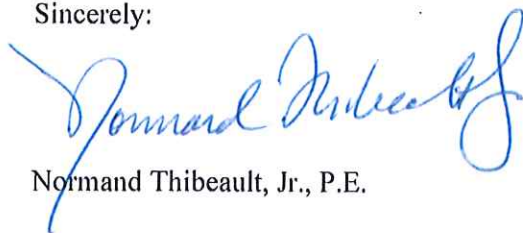 Sincerely:
Normand Thibeault Jr
Normand Thibeault, Jr., P.E.